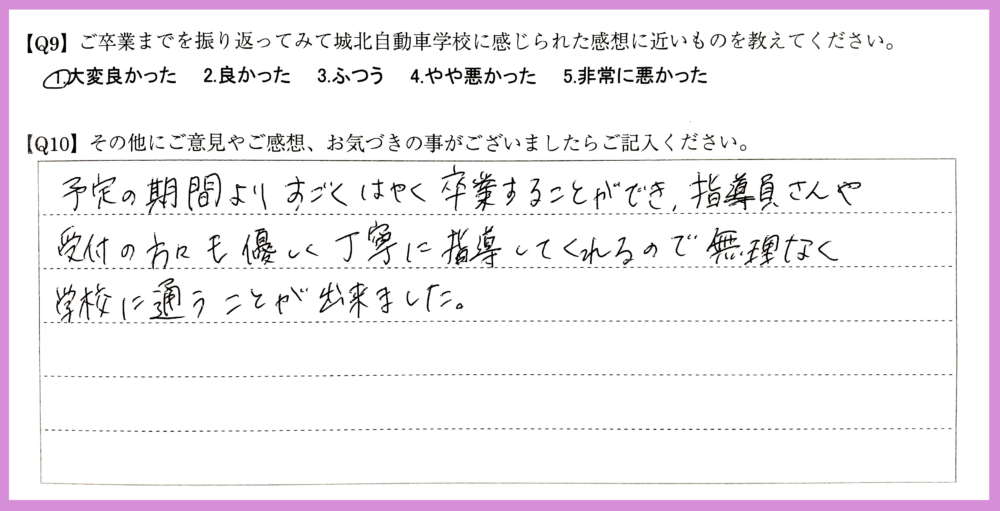 【Q9】ご卒業までを振り返ってみて城北自動車学校に感じられた感想に近いものを教えてください。
1.大変良かった 2.良かった 3.ふつう 4.やや悪かった 5.非常に悪かった
【Q10】その他にご意見やご感想、お気づきの事がございましたらご記入ください。
予定の期間よりすごくはやく卒業することができ、指導員さんや
受付の方々も優しく丁寧に指導してくれるので無理なく
学校に通うことが出来ました。